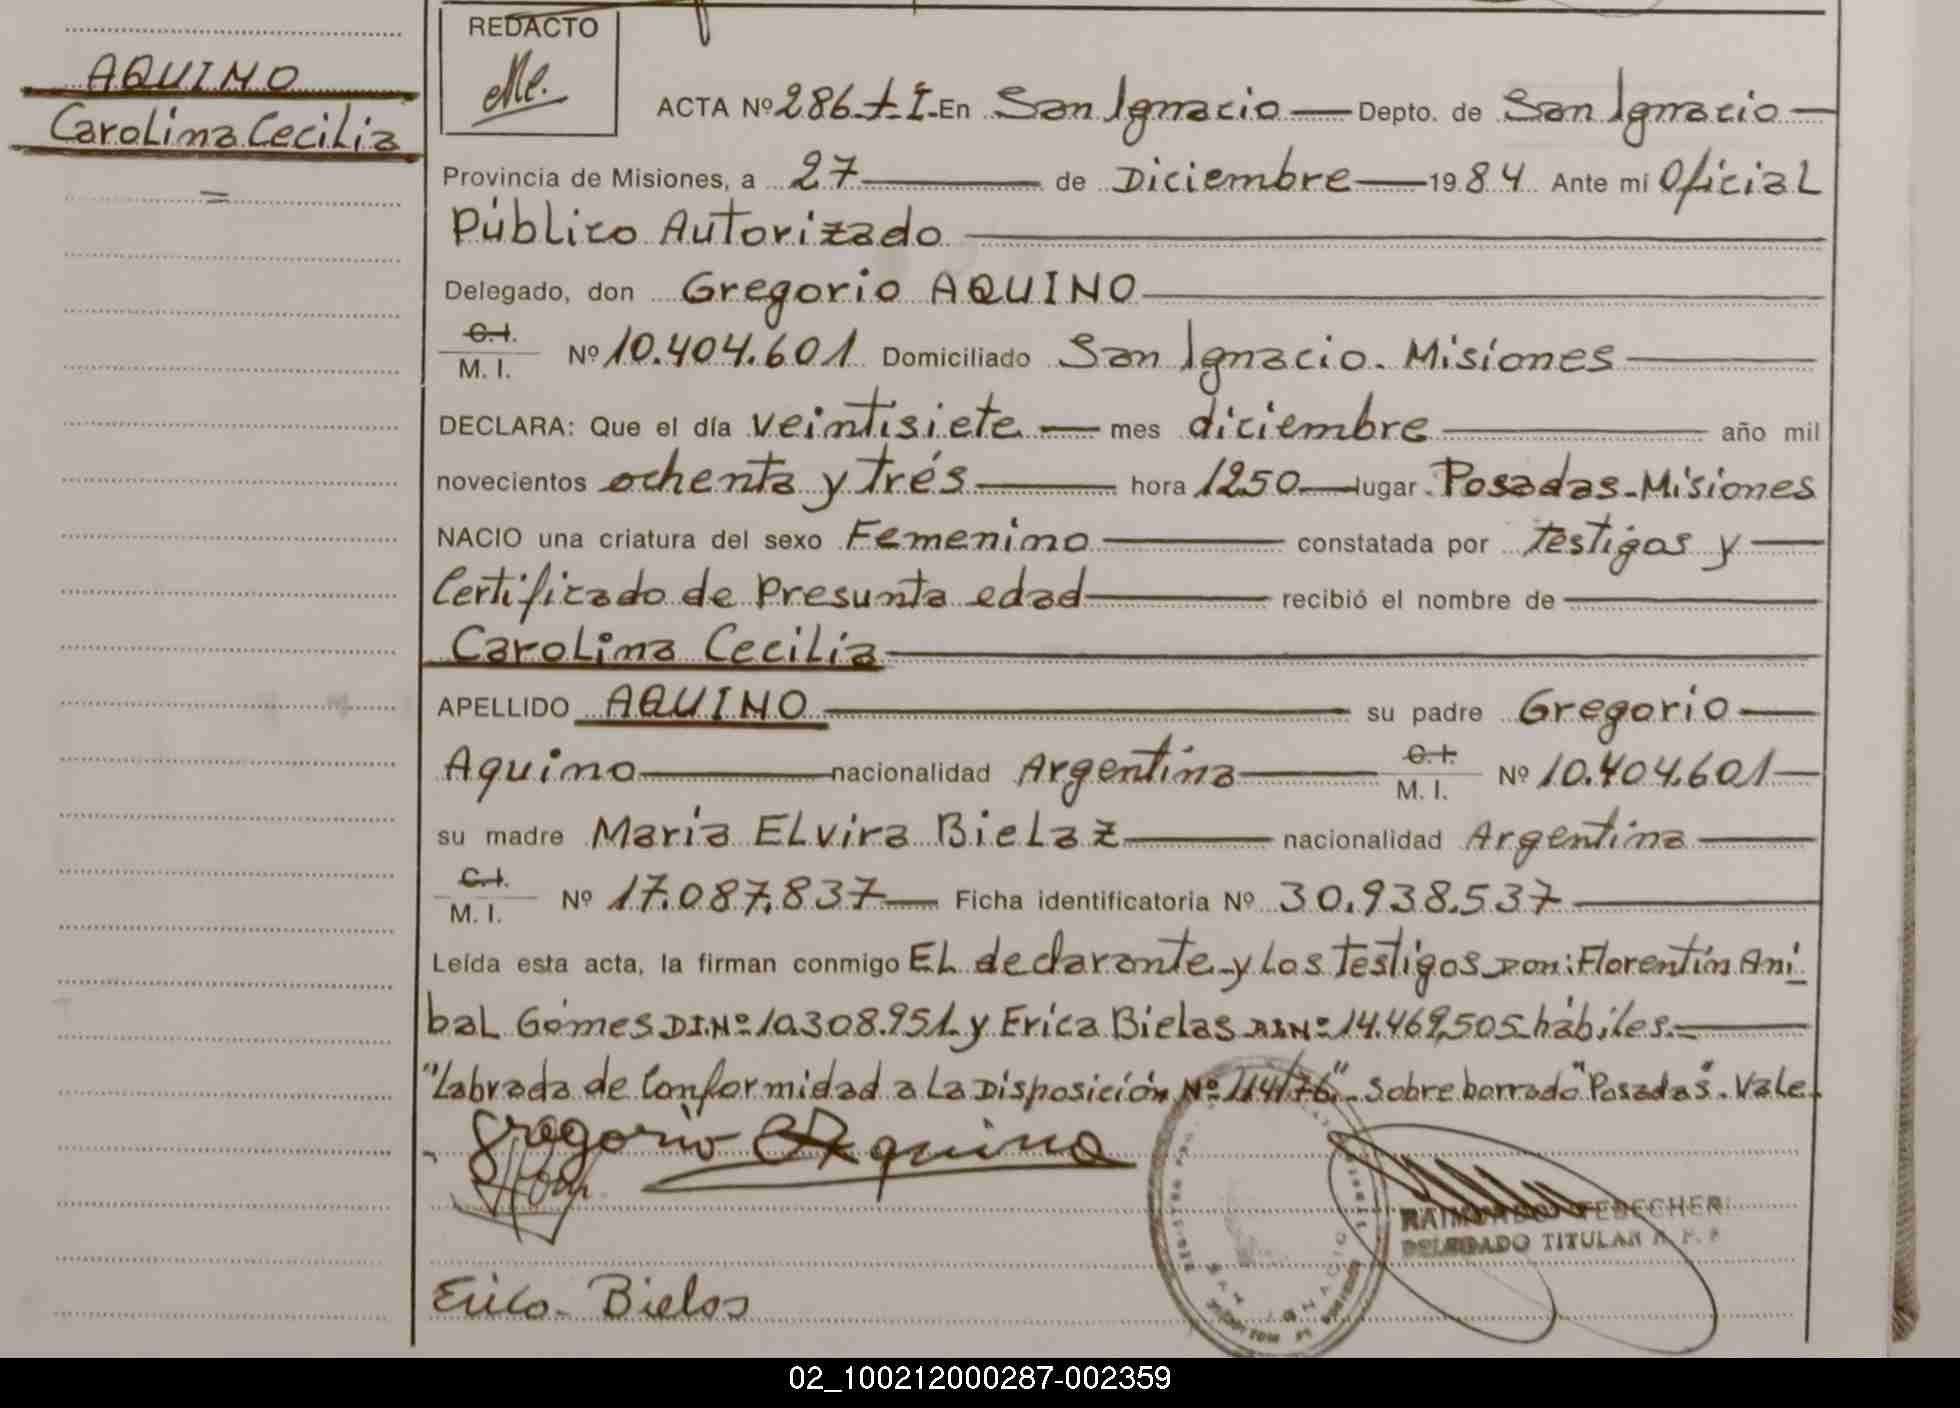 REDACTO
AQUINO
Carolina Cecilia
=
ACTA Nº 286-tI- En San Ignacio — Depto. de San Ignacio —
Provincia de Misiones, a 27 — de Diciembre — 1984 Ante mi Oficial
Público Autorizado —
Delegado, don Gregorio AQUINO —
C.I.
M. I. Nº 10.404.601 Domiciliado San Ignacio. Misiones —
DECLARA: Que el día veintisiete — mes diciembre — año mil
novecientos ochenta y trés — hora 1250 — lugar Posadas-Misiones
NACIO una criatura del sexo Femenino — constatada por testigos y —
Certificado de Presunta edad — recibió el nombre de —
Carolina Cecilia —
APELLIDO AQUINO — su padre Gregorio —
Aquino — nacionalidad Argentina — C.I.
M. I. Nº 10.404.601 —
su madre Maria Elvira Bielaz — nacionalidad Argentina —
C.I.
M. I. Nº 17.087.837 — Ficha identificatoria Nº 30.938.537 —
Leída esta acta, la firman conmigo El declarante y Los testigos Don: Florentín Aní
bal Gómes D.I.Nº 10.308.951. y Erica Bielas D.I.Nº 14.469.505 hábiles. —
"Labrada de Conformidad a La Disposición Nº 114/76"- Sobre borrado "Posadas". Vale.
Gregorio Aquino
RAIMUNDO
DELEGADO TITULAR R. P.
Erica Bielas
SAN IGNACIO
02_100212000287-002359